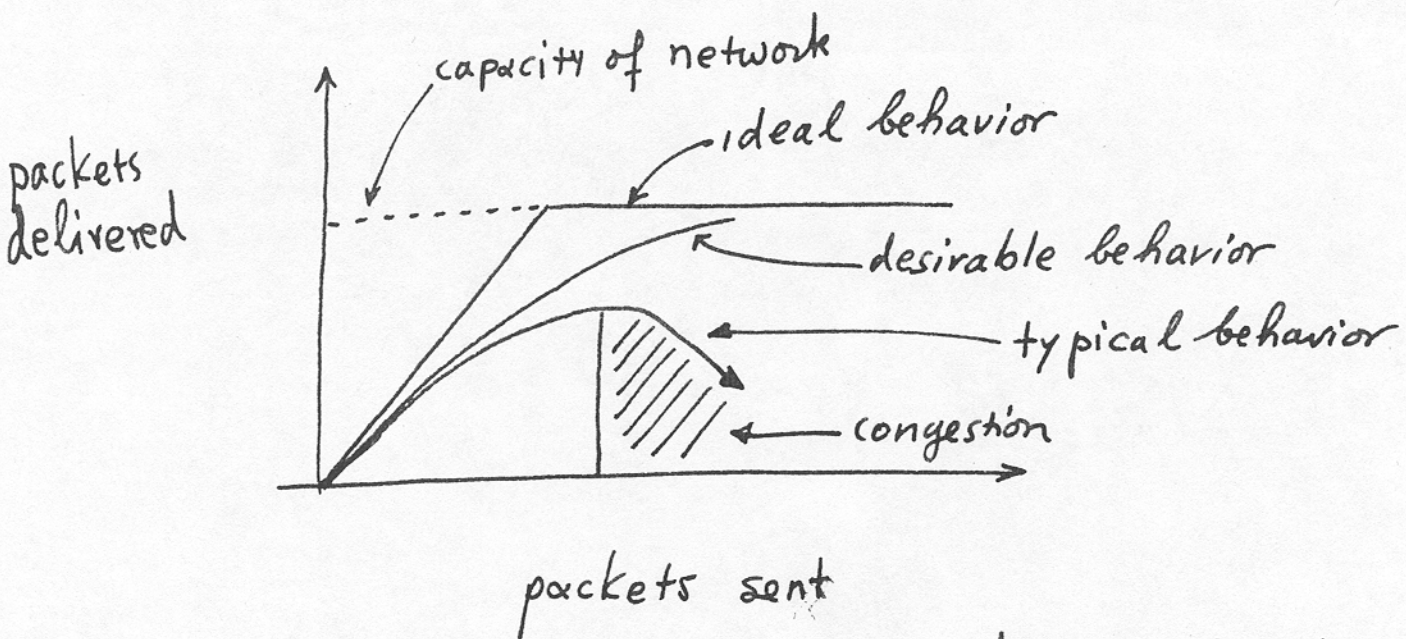 capacity of network
ideal behavior
packets
delivered
desirable behavior
typical behavior
congestion
packets sent